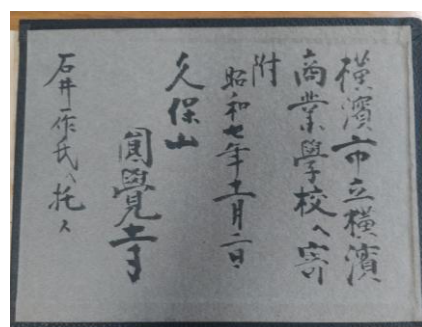 横濱市立横濱
商業學校へ寄
附
昭和七年十一月二日
久保山
圓覺寺
石井一作氏へ托ス